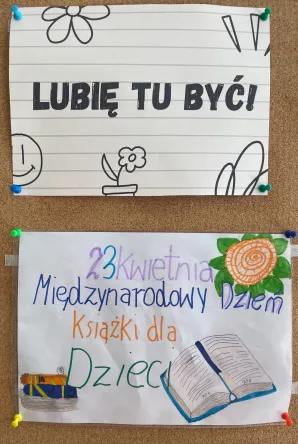 LUBIĘ TU BYĆ!
23 kwietnia
Międzynarodowy Dzień
Książki dla
Dzieci